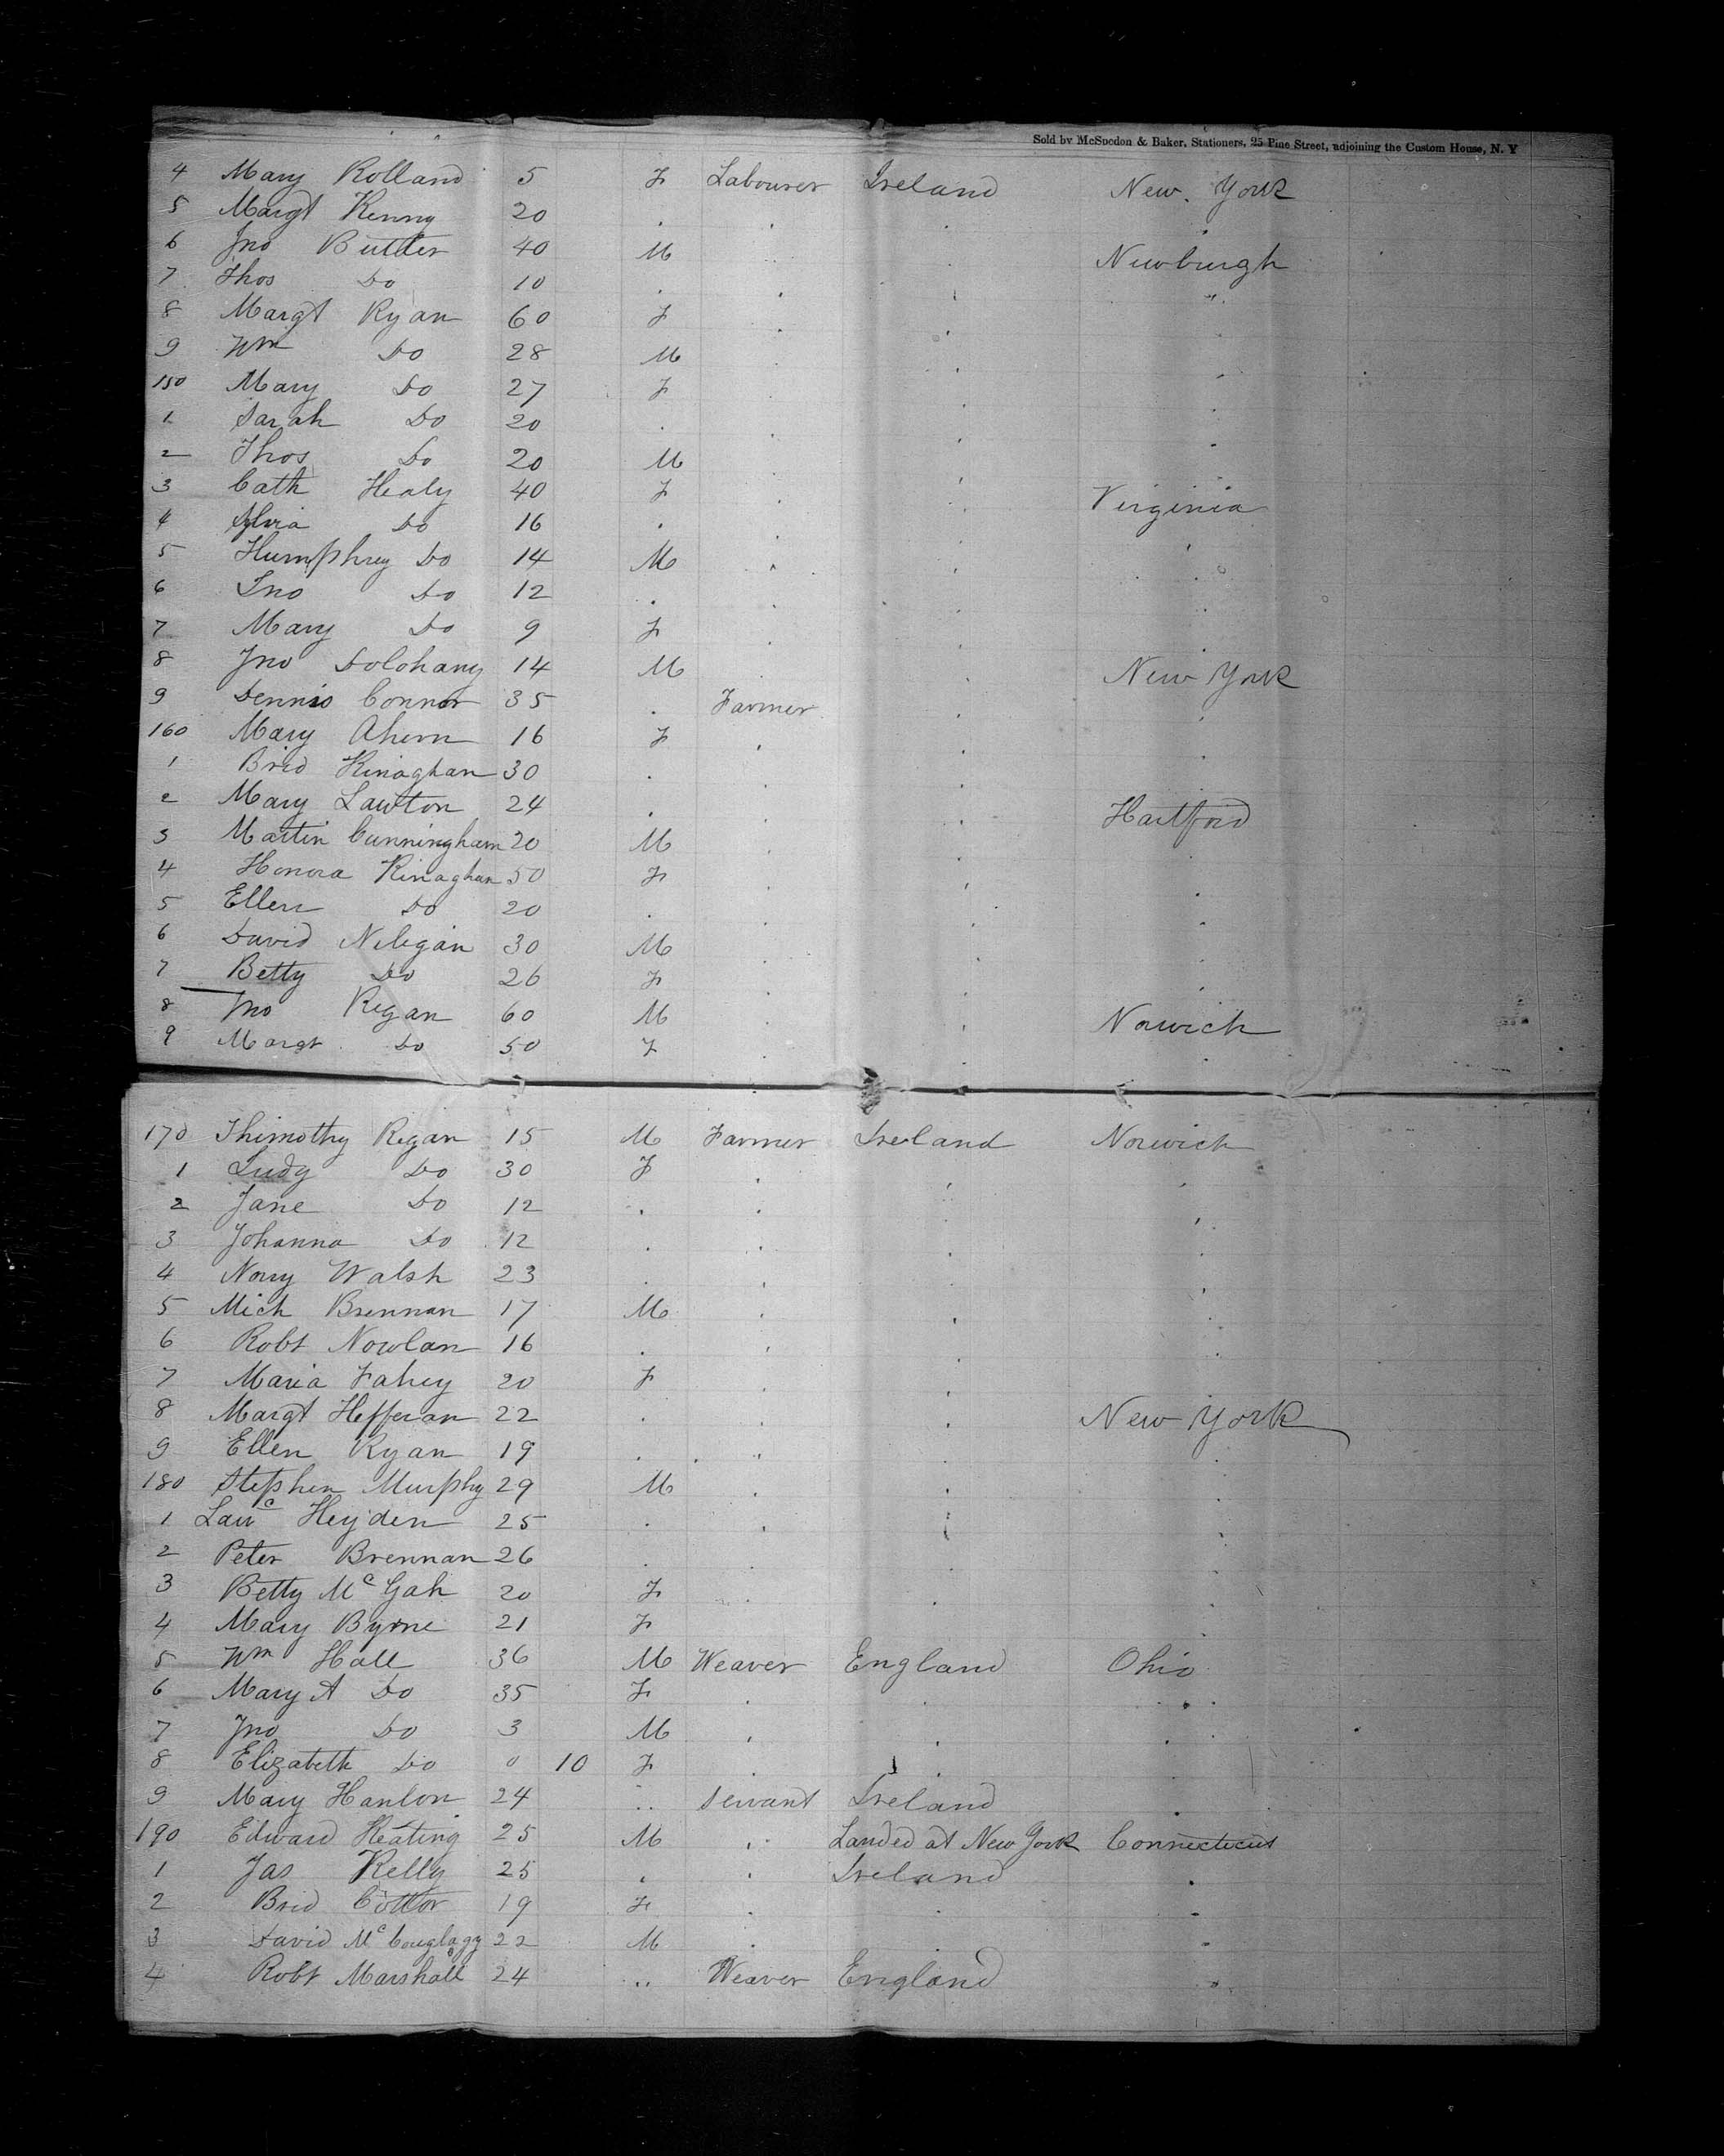 Sold by McSpedon & Baker, Stationers, 25 Pine Street, adjoining the Custom House, N. Y
4 Mary Rolland 5 F Labourer Ireland New York
5 Margt Kenny 20 . . . .
6 Jno Butler 40 M .. . Newburgh
7 Thos Do 10 . . . "
8 Margt Ryan 60 F . . .
9 Wm Do 28 M . . .
150 Mary Do 27 F . . .
1 Sarah Do 20 . . . .
2 Thos Do 20 M . . .
3 Cath Healy 40 F . . Virginia
4 Do 16 . . . .
5 Humphrey Do 14 M . . .
6 Jno Do 12 . . . .
7 Mary Do 9 F . . .
8 Jno Dolohany 14 M . . New York
9 Dennis Connor 35 . Farmer . .
160 Mary Ahern 16 F . . .
1 Brid Kinaghan 30 . . . .
2 Mary Lawton 24 . . . Hartford
3 Martin Cunningham 20 M . . .
4 Honora Kinaghan 50 F . . .
5 Ellen Do 20 . . . .
6 David Neligan 30 M . . .
7 Betty Do 26 F . . .
8 Jno Regan 60 M . . Norwich
9 Margt Do 50 F . . .
170 Thimothy Regan 15 M Farmer Ireland Norwich
1 Judy Do 30 F . . .
2 Jane Do 12 . . . .
3 Johanna Do 12 . . . .
4 Nory Walsh 23 . . . .
5 Mich Brennan 17 M . . .
6 Robt Nowlan 16 . . . .
7 Maria Fahey 20 F . . .
8 Margt Hefferan 22 . . . New York
9 Ellen Ryan 19 . . . .
180 Stephen Murphy 29 M . . .
1 Lawc Heyden 25 . . . .
2 Peter Brennan 26 . . . .
3 Betty McGah 20 F . . .
4 Mary Byrne 21 F . . .
5 Wm Hall 36 M Weaver England Ohio
6 Mary A Do 35 F . . .
7 Jno Do 3 M . . .
8 Elizabeth Do 0 10 F . . .
9 Mary Hanlon 24 .. Servant Ireland .
190 Edward Keating 25 M . Landed at New York Connecticut
1 Jas Kelly 25 . . Ireland .
2 Brid Cottor 19 F . . .
3 David 22 M . . .
4 Robt Marshall 24 .. Weaver England .